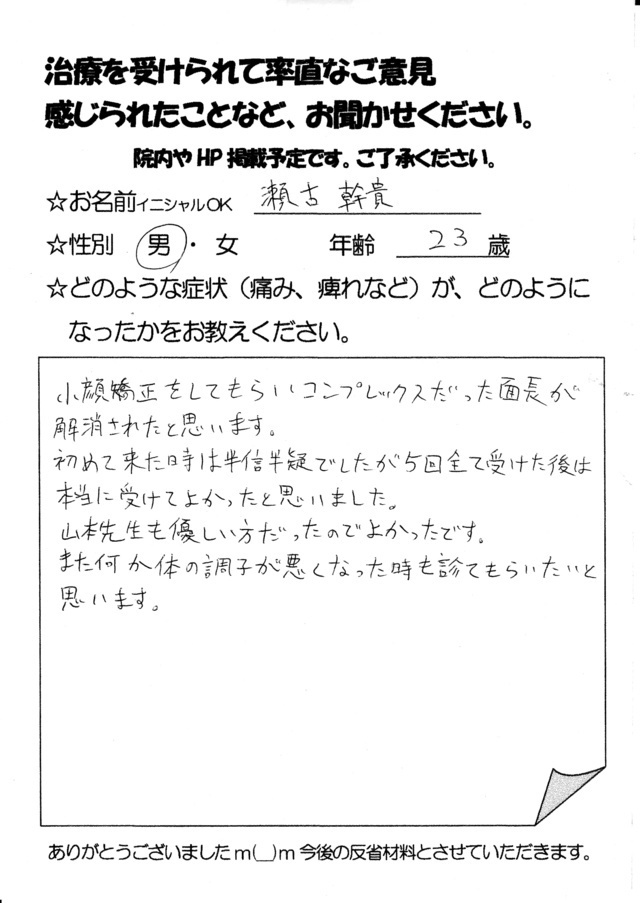 治療を受けられて率直なご意見
感じられたことなど、お聞かせください。
院内やHP掲載予定です。ご了承ください。
☆お名前イニシャルOK 瀬古 幹貴
☆性別 男・女 年齢 23 歳
☆どのような症状（痛み、痺れなど）が、どのように
なったかをお教えください。
小顔矯正をしてもらいコンプレックスだった面長が
解消されたと思います。
初めて来た時は半信半疑でしたが5回全て受けた後は
本当に受けてよかったと思いました。
山本先生も優しい方だったのでよかったです。
また何か体の調子が悪くなった時も診てもらいたいと
思います。
ありがとうございましたm(__)m今後の反省材料とさせていただきます。